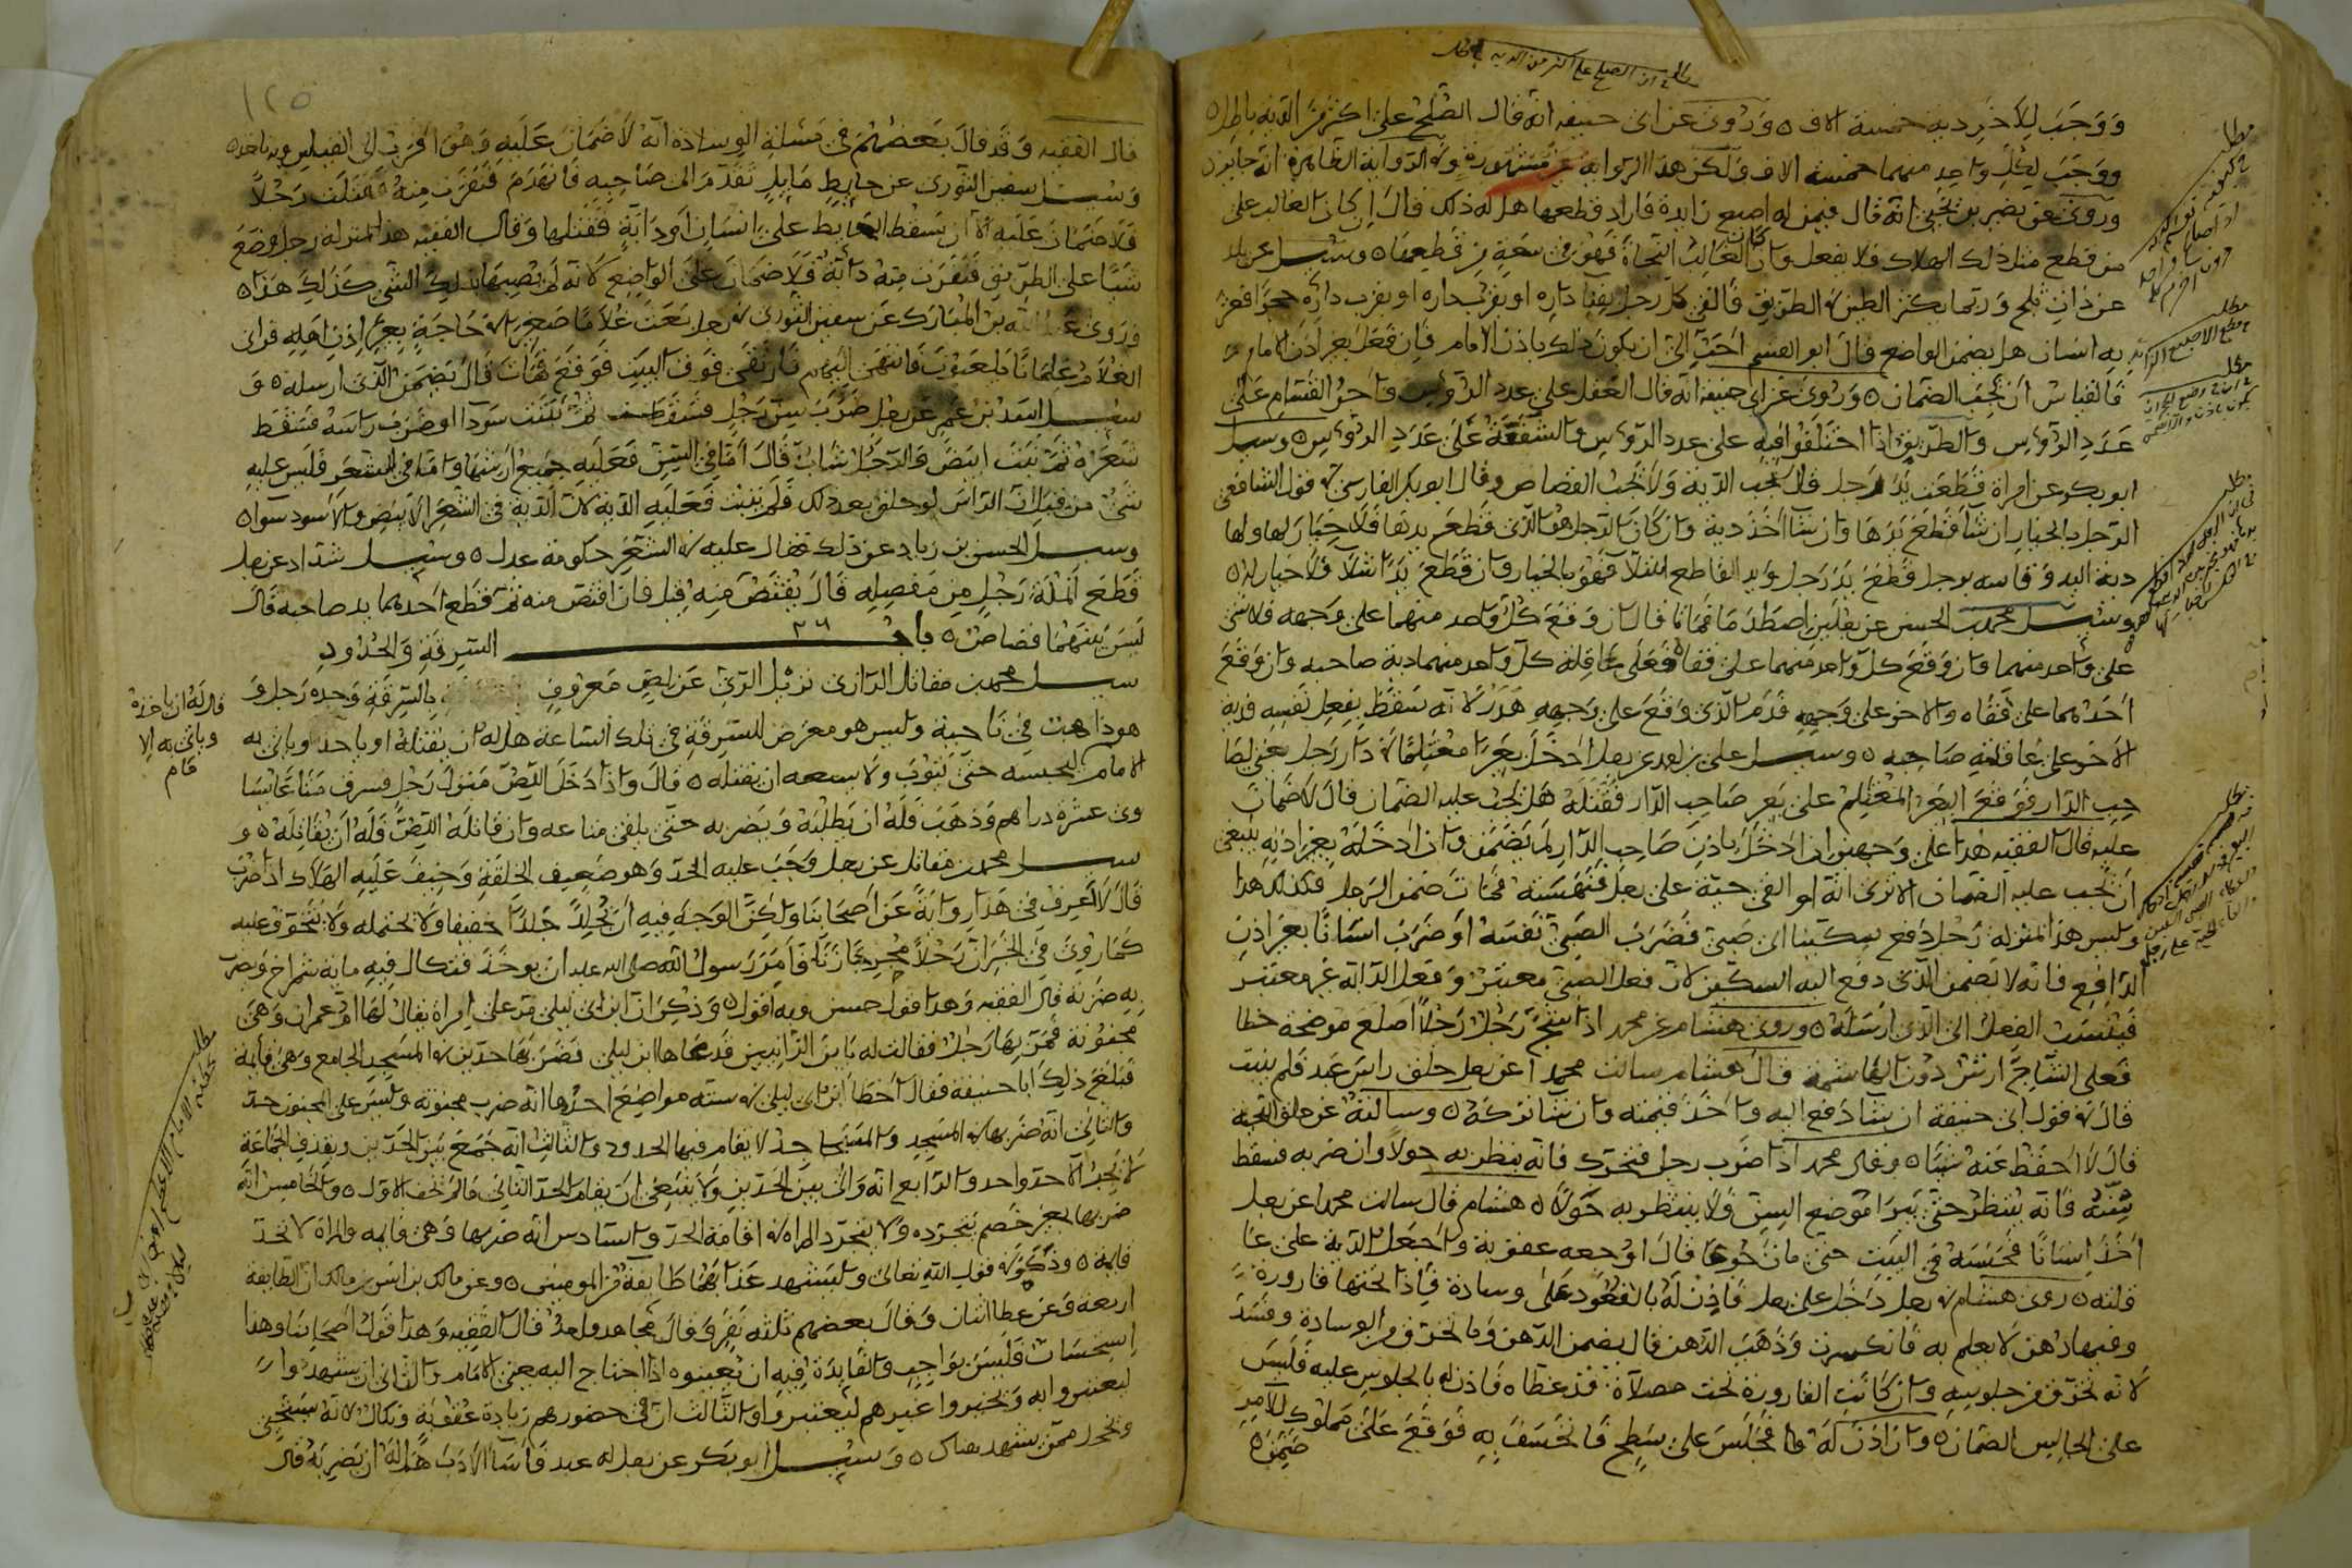 ووجب للآخر دية خمسة الاف وروي عن ابي حنيفة انه قال الصلح على اكثر من الدية باطل
ووجب لكل واحد منهما خمسة الاف ولكن هذا الرواية غير مشهورة وفي الرواية الظاهرة انه جايز
وروي عن نصير بن يحيى انه قال فيمن له اصبع زايدة فاراد قطعها هل له ذلك قال ان كان الغالب على
من قطع مثل ذلك الهلاك فلا يفعل وان كان الغالب النجاة فهو في سعة من قطعها وسئل عن بلد
عن ذات ثلج وربما يكثر الطين في الطريق فالقى كل رجل بفناء داره او بقرب داره حجرا فعثر
به انسان هل يضمن الواضع قال ابو القسم احب الي ان يكون ذلك باذن الامام فان فعل بغير اذن الامام
فالقياس ان يجب الضمان وروي عن ابي حنيفة انه قال العقل على عدد الرؤس واجر القسام على
عدد الرؤس والطريق اذا اختلفوا فيه على عدد الرؤس والشفعة على عدد الرؤس وسئل
ابو بكر عن امراة قطعت يد رجل قال تجب الدية ولا يجب القصاص وقال ابو بكر الفارسي في قول الشافعي
الرجل بالخيار ان شا قطع يدها وان شا اخذ دية وان كان الرجل هو الذي قطع يدها فلا خيار لها ولها
دية اليد وقاسه برجل قطع يد رجل ويد القاطع شلا فهو بالخيار وان قطع يدا شلا فلا خيار له
وسئل محمد بن الحسن عن رجلين اصطدما فماتا قال ان وقع كل واحد منهما على وجهه فلا شي
على واحد منهما وان وقع كل واحد منهما على قفاه فعلى عاقلة كل واحد منهما دية صاحبه وان وقع
احدهما على قفاه والاخر على وجهه فدم الذي وقع على وجهه هدر لانه سقط بفعل نفسه ودية
الاخر على عاقلة صاحبه وسئل علي بن احمد عن رجل ادخل بعيرا مغتلما في دار رجل يعني لصا
حب الدار فوقع البعير المغتلم على بعير صاحب الدار فقتله هل يجب عليه الضمان قال لا ضمان
عليه قال الفقيه هذا على وجهين ان ادخل باذن صاحب الدار لم يضمن وان ادخله بغير اذنه ينبغي
ان يجب عليه الضمان الا ترى انه لو القى حية على رجل فنهسته فمات ضمن الرجل فكذلك هذا
وليس هذا بمنزلة رجل دفع سكينا الى صبي فضرب الصبي نفسه او ضرب انسانا بغير اذن
الدافع فانه لا يضمن الذي دفع اليه السكين لان فعل الصبي معتبر وفعل الدابة غير معتبر
فينسب الفعل الى الذي ارسله وروى هشام عن محمد اذا شج رجل رجلا اصلع موضحة خطا
فعلى الشاج ارش دون الهاشمة قال هشام سالت محمدا عن رجل حلق راس عبد فلم ينبت
قال في قول ابي حنيفة ان شا دفع اليه واخذ قيمته وان شا تركه وسالته عن حلق اللحية
قال لا احفظ عنه شيا وقال محمد اذا ضرب رجل فتحرك فانه ينظر به حولا وان ضربه فسقط
سنه فانه ينتظر حتى يبرا موضع السن ولا ينتظر به حولا هشام قال سالت محمدا عن رجل
اخذ انسانا فحبسه في البيت حتى مات جوعا قال اوجعه عقوبة واجعل الدية على عا
قلته روى هشام في رجل دخل على رجل فاذن له بالقعود على وسادة فاذا تحتها قارورة
وفيها دهن لا يعلم به فانكسرت وذهب الدهن قال يضمن الدهن وما تخرق من الوسادة وفسد
لانه تخرق من جلوسه وان كانت القارورة تحت مصلاة قد غطاه فاذن له بالجلوس عليه فليس
على الجالس الضمان وان اذن له فجلس على سطح فانخسف به فوقع على مملوك للآمر
ضمن
قال الفقيه وقد قال بعضهم في مسئلة الوسادة انه لا ضمان عليه وهو اقرب الى القياس وبه ناخذ
وسئل سفين الثوري عن حايط مايل تقدم الى صاحبه فانهدم فنفرت منه فقتلت رجلا
فلا ضمان عليه الا ان يسقط الحايط على انسان او دابة فقتلها وقال الفقيه هذا بمنزلة رجل وضع
شيا على الطريق فنفرت منه دابة فلا ضمان على الواضع لانه لم يصبها ذلك الشي كذلك هذا
وروى عبد الله بن المبارك عن سفين الثوري في رجل بعث غلاما صغيرا في حاجة بغير اذن اهله فراى
الغلام غلمانا يلعبون فانتهى اليهم فارتقى فوق البيت فوقع فمات قال يضمن الذي ارسله و
سئل اسد بن عمرو عن رجل ضرب سن رجل فسقطت ثم نبتت سودا او ضرب راسه فسقط
شعره ثم نبت ابيض والرجل شاب قال اما في السن فعليه جميع ارشها واما في الشعر فليس عليه
شي من قبل ان الراس لو حلق بعد ذلك فلم ينبت فعليه الدية لان الدية في الشعر الابيض والاسود سوا
وسئل الحسن بن زياد عن ذلك فقال عليه في الشعر حكومة عدل وسئل شداد عن رجل
قطع انملة رجل من مفصله قال يقتص منه قيل فان اقتص منه ثم قطع احدهما يد صاحبه قال
ليس بينهما قصاص باب السرقة والحدود
سئل محمد بن مقاتل الرازي نزيل الري عن لص معروف بالسرقة وجده رجل و
هو ذاهب في ناحية وليس هو معرض للسرقة في تلك الساعة هل له ان يقتله او ياخذ وياتي به
الامام ليحبسه حتى يتوب ولا يسعه ان يقتله قال واذا دخل اللص منزل رجل فسرق متاعا يسا
وي عشرة دراهم وذهب فله ان يطلبه ويضربه حتى يلقي متاعه وان قاتله اللص فله ان يقاتله و
سئل محمد بن مقاتل عن رجل وجب عليه الحد وهو ضعيف الخلقة وخيف عليه الهلاك اذا ضرب
قال لا اعرف في هذا رواية عن اصحابنا ولكن الوجه فيه ان يجلد جلدا خفيفا ولا يحتمله ولا يتخوف عليه
كما روي في الخبر ان رجلا مخدجا زنا فامر رسول الله صلى الله عليه ان يوخذ عثكال فيه ماية شمراخ وضرب
به ضربة قال الفقيه وهذا قول حسن وبه اقول وذكر ان ابن ابي ليلى مر على امراة يقال لها ام عمران وهي
مجنونة فمر بها رجل فقالت له يا بن الزانيين فدعاها ابن ليلى فضربها حدين في المسجد الجامع وهي قايمة
فبلغ ذلك ابا حنيفة فقال اخطا ابن ابي ليلى في ستة مواضع احدها انه ضرب مجنونة وليس على المجنون حد
والثاني انه ضربها في المسجد والمسجد لا يقام فيها الحدود والثالث انه جمع بين الحدين وبقذف الجماعة
لا يجب الا حد واحد والرابع انه والى بين الحدين ولا ينبغي ان يقام الحد الثاني ما لم يخف الاول والخامس انه
ضربها بغير خصم والسادس انه ضربها وهي قايمة والمراة لا تحد
قايمة وذكر في قول الله تعالى وليشهد عذابهما طايفة من المومنين وعن مالك بن انس ان الطايفة
اربعة وعن عطا اثنان وقال بعضهم ثلثة نفر وقال مجاهد واحد قال الفقيه وهذا قول اصحابنا وهذا
استحسان فليس بواجب والفايدة فيه ان يعينوه اذا احتاج اليه يعني الامام والثاني ان يشهدوا
ليعتبروا به ويخبروا غيرهم ليعتبروا والثالث ان في حضورهم زيادة عقوبة ونكال لانه يستحيي
ويخجل ممن يشهد هناك وسئل ابو بكر عن رجل له عبد فاسا الادب هل له ان يضربه قال
قال له ان ياخذه
وياتي به الا
مام